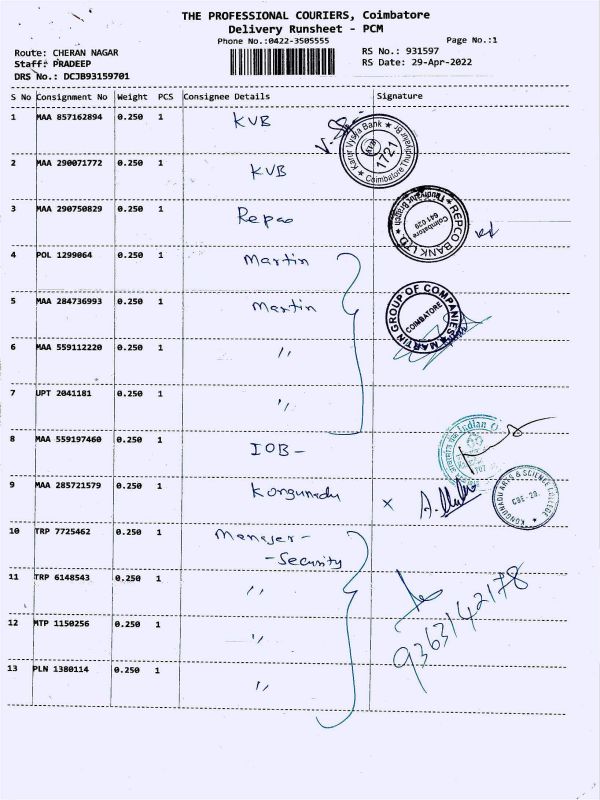 THE PROFESSIONAL COURIERS, Coimbatore
Delivery Runsheet - PCM
Phone No.:0422-3505555
Page No.:1
Route: CHERAN NAGAR
Staff: PRADEEP
DRS No.: DCJB93159701
RS No.: 931597
RS Date: 29-Apr-2022
S No Consignment No Weight PCS Consignee Details Signature
1 MAA 857162894 0.250 1 KVB
Karur Vysya Bank ★ Coimbatore Thudiyalur Br. ★
1721
2 MAA 290071772 0.250 1 KVB
3 MAA 290750829 0.250 1 Repco
REPCO BANK LTD. Thudiyalur Branch
Coimbatore
641 029
4 POL 1299064 0.250 1 Martin
5 MAA 284736993 0.250 1 Martin
MARTIN GROUP OF COMPANIES ★
COIMBATORE
6 MAA 559112220 0.250 1 〃
7 UPT 2041181 0.250 1 〃
8 MAA 559197460 0.250 1 IOB -
Indian
9 MAA 285721579 0.250 1 Kongunadu x
KONGUNADU ARTS & SCIENCE COLLEGE ★
CBE - 29.
10 TRP 7725462 0.250 1 Manager -
- Security
11 TRP 6148543 0.250 1 〃
12 MTP 1150256 0.250 1 〃
9363142178
13 PLN 1380114 0.250 1 〃